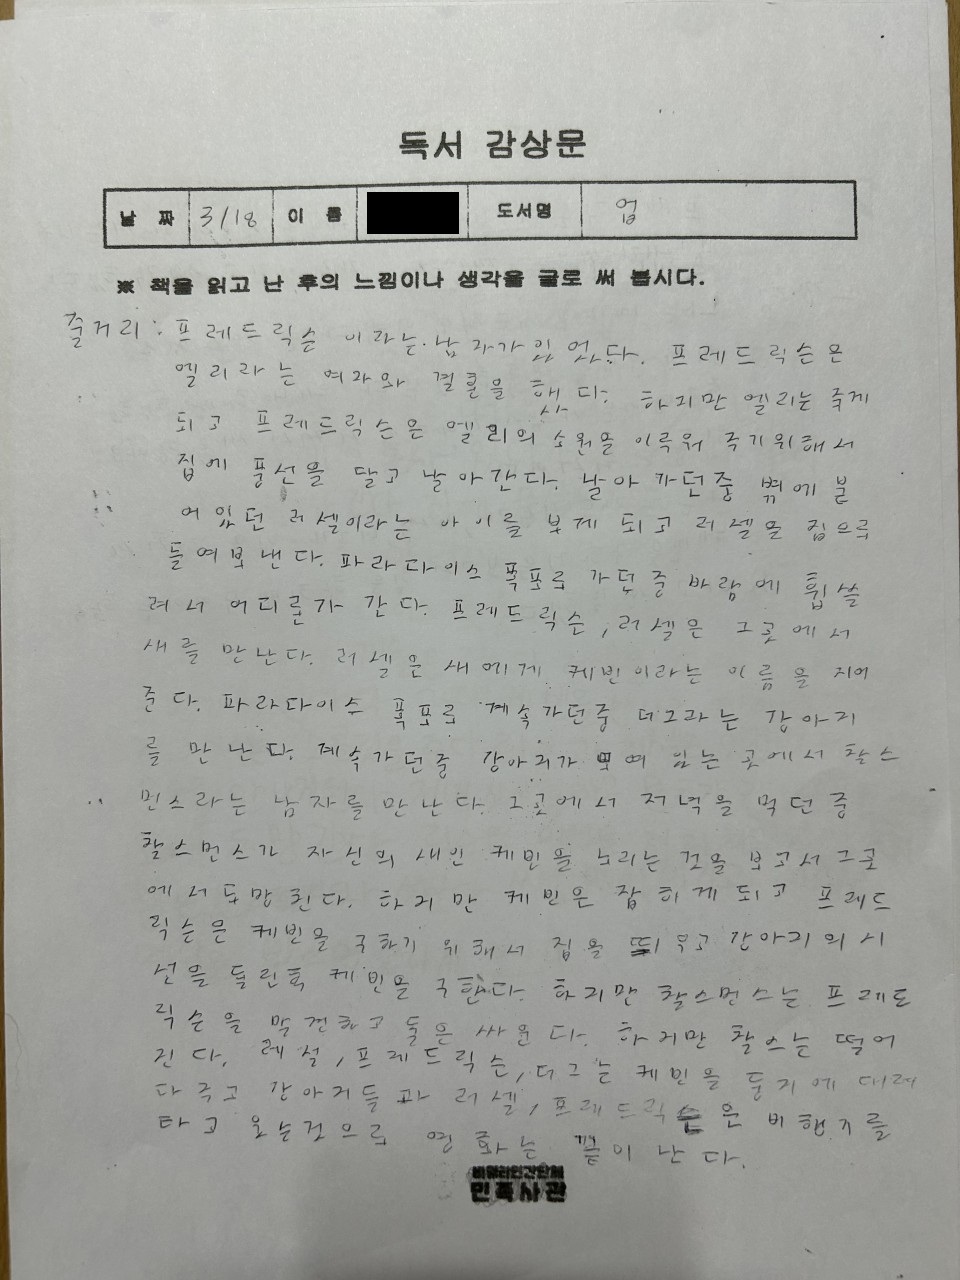 독서 감상문
날 짜 3/18 이 름 도서명 업
※ 책을 읽고 난 후의 느낌이나 생각을 글로 써 봅시다.
줄거리: 프레드릭슨 이라는 남자가 있었다. 프레드릭슨은
엘리라는 여자와 결혼을 했다. 하지만 엘리는 죽게
되고 프레드릭슨은 엘리의 소원을 이루워 주기위해서
집에 풍선을 달고 날아간다. 날아 가던중 벾에 붙
어 있던 러셀이라는 아이를 보게 되고 러셀을 집으로
들여보낸다. 파라다이스 폭포로 가던중 바람에 휩쓸
려서 어디론가 간다. 프레드릭슨, 러셀은 그곳에서
새를 만난다. 러셀은 새에게 케빈이라는 이름을 지어
준다. 파라다이스 폭포로 계속가던중 더그라는 강아지
를 만난다. 계속가던중 강아지가 모여 있는 곳에서 찰스
먼스라는 남자를 만난다. 그곳에서 저녁을 먹던 중
찰스먼스가 자신의 새인 케빈을 노리는 것을 보고서 그곳
에서 도망친다. 하지만 케빈은 잡히게 되고 프레드
릭슨은 케빈을 구하기 위해서 집을 띄우고 강아지의 시
선을 돌린후 케빈을 구한다. 하지만 찰스먼스는 프레드
릭슨을 발견하고 둘은 싸운다. 하지만 찰스는 떨어
진다. 레셀, 프레드릭슨, 더그는 케빈을 둥지에 데려
다 주고 강아지들과 러셀, 프레드릭슨은 비행기를
타고 오는것으로 영화는 끝이 난다.
민족사관